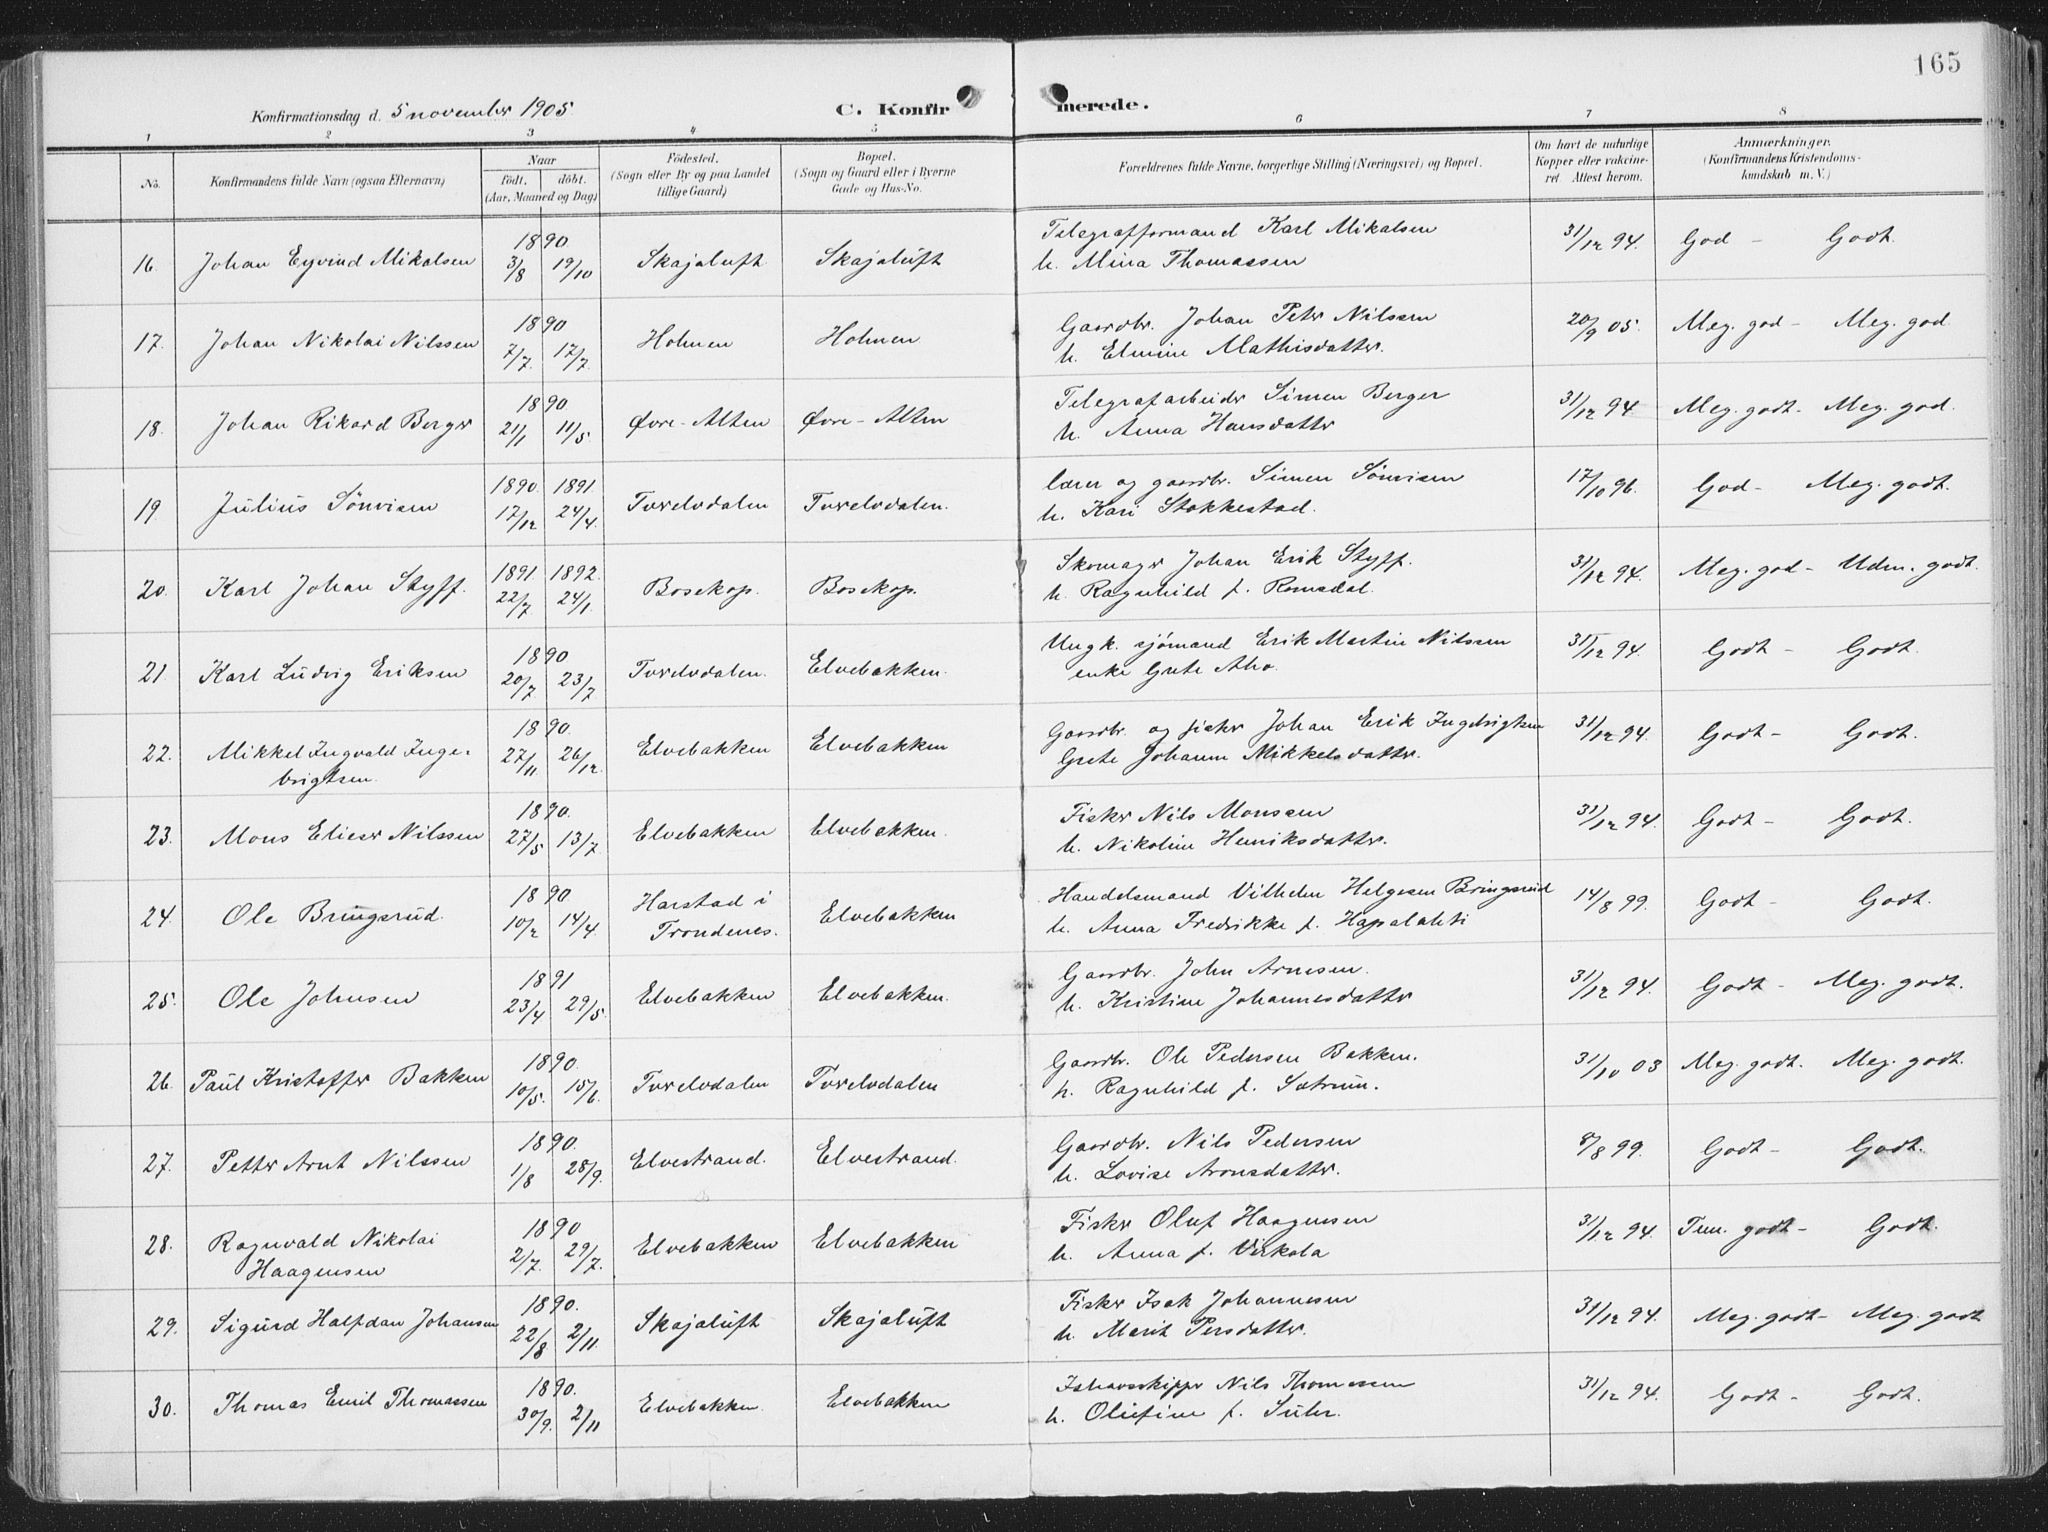 165
Konfirmationsdag d. 5 november 1905.
C. Konfirmerede.
1 2 3 4 5 6 7 8
No.
Konfirmandens fulde Navn (ogsaa Efternavn)
Naar
født, døbt.
(Aar, Maaned og Dag)
Fødested.
(Sogn eller By og paa Landet
tillige Gaard)
Bopæl.
(Sogn og Gaard eller i Byerne
Gade og Hus-No.
Forældrenes fulde Navne, borgerlige Stilling (Næringsvei) og Bopæl.
Om havt de naturlige
Kopper eller vakcine-
ret. Attest herom.
Anmærkninger.
(Konfirmandens Kristendoms-
kundskab m. V.)
16. Johan Eyvind Mikalsen 1890 3/8 19/10 Skajaluft Skajaluft
Telegrafformand Karl Mikalsen
h. Mina Thomassen
31/12 94. God - Godt.
17. Johan Nikolai Nilssen 1890 7/7. 17/7. Holmen Holmen
Gaardbr. Johan Peter Nilssen
h. Elmine Mathisdatter.
20/9 05. Meg. god - Meg. god.
18. Johan Rikard Berger 1890 21/1 11/5 Øvre-Alten Øvre-Alten
Telegrafarbeider Simen Berger
h. Anna Hansdatter
31/12 94. Meg. godt. Meg. god.
19. Julius Sönvisen 1890. 1891. 17/12 24/4. Tverelvdalen Tverelvdalen.
lærer og gaardbr. Simen Sönvisen
h. Kari Stokkestad.
17/10 96. God - Meg. godt.
20. Karl Johan Styff. 1891. 1892. 22/7 24/1. Bosekop. Bosekop.
Skomager Johan Erik Styff.
h. Ragnhild f. Romsdal.
31/12 94. Meg. god - Udm. godt.
21. Karl Ludvig Eriksen 1890 20/7 23/7 Tverelvdalen. Elvebakken.
Ungk. sjömand Erik Martin Nilssen
enke Grete Aho.
31/12 94. Godt - Godt.
22. Mikkel Ingvald Inge-
brigtsen. 1890. 27/11 26/12. Elvebakken Elvebakken
Gaardbr. og fisker Johan Erik Ingebrigtsen
Grete Johanne Mikkelsdatter.
31/12 94. Godt - Godt.
23. Mons Elieser Nilssen 1890. 27/5 13/7 Elvebakken Elvebakken.
Fisker Nils Monssen
h. Nikoline Henriksdatter.
31/12 94. Godt - Godt.
24. Ole Bringsrud. 1890 10/2 14/4. Harstad i
Trondenes. Elvebakken
Handelsmand Vilhelm Helgesen Bringsrud
h. Anna Fredrikke f. Hapalahti
14/8 99. Godt - Godt.
25. Ole Johnsen 1891 23/4 29/5. Elvebakken Elvebakken.
Gaardbr. John Arnesen.
h. Kristine Johannesdatter
31/12 94. Godt - Meg. godt.
26. Paul Kristoffer Bakken 1890. 10/5. 15/6. Tverelvdalen Tverelvdalen
Gaardbr. Ole Pedersen Bakken.
h. Ragnhild f. Sætrum.
31/10 03 Meg. godt. Meg. godt.
27. Petter Arnt Nilssen 1890. 1/8 28/9. Elvestrand. Elvestrand.
Gaardbr. Nils Pedersen
h. Lovise Aronsdatter.
8/8 99. Godt - Godt.
28. Ragnvald Nikolai
Haagensen 1890 2/7. 29/7. Elvebakken Elvebakken
Fisker Oluf Haagensen
h. Anna f. Virkola
31/12 94. Tem. godt - Godt.
29. Sigurd Halfdan Johansen 1890. 22/8 2/11. Skajaluft Skajaluft
Fisker Isak Johannesen
h. Marit Persdatter.
31/12 94. Meg. godt - Meg. godt
30. Thomas Emil Thomassen 1890. 30/9. 2/11 Elvebakken. Elvebakken
Ishavsskipper Nils Thomassen
h. Olufine f. Suhr.
31/12 94. Godt - Godt.